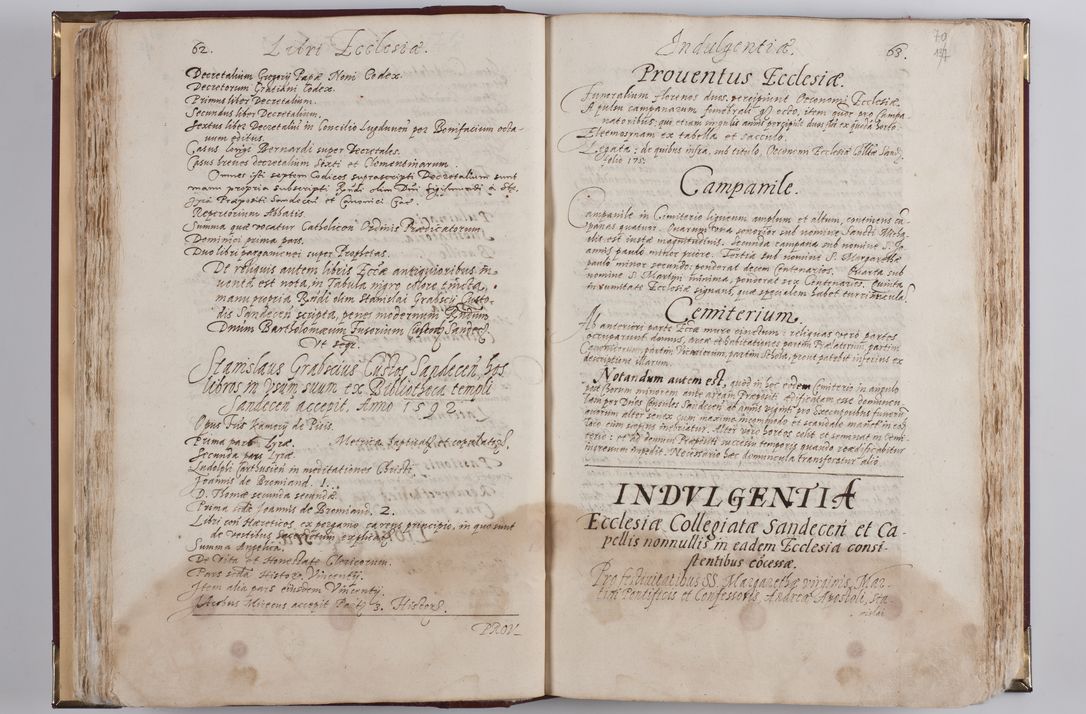 62. Libri Ecclesiæ.
Decretalium Gregorij Papæ Noni Codex.
Decretorum Gratiani Codex.
Primus liber Decretalium.
Secundus liber Decretalium.
Sextus liber Decretaliũ in Concilio Lugdunen per Bonifacium octa-
uum editus.
Casus longi Bernardi super Decretales.
Casus breues decretalium Sexti et Clementinarum.
Omnes isti septem Codices suprascripti Decretalium sunt
manu propria subscripti Rñdi olim Dñi
Præpositi Sandecen et Canonici Crac.
Repertorium Abbatis.
Summa quæ vocatur Catholicon Ordinis Prædicatorum.
Dominici prima pars.
Duo libri pargamenei super Prophetas.
De reliquis autem libris Eccæ antiquioribus in
uenta est nota, in Tabula nigro colore tincta,
manu propria Rñdi olim Stanislai Grabscij Custo-
dis Sandecen scripta, penes modernum Rñdum
Dnum Bartholomæum Fuserium Custod. Sandec.
Vt seqr.
Stanislaus Grabscius Custos Sandecen, hos
libros in vsum suum ex Bibliotheca templi
Sandecen accepit. Anno 1592.
Opus Fris
Prima pars Lyræ. Metrica Sapientiæ et copulata
Secunda pars Lyræ.
Ludolphi Carthusien in meditationes Christi.
Joannis de Bromiand. 1.
D. Thomæ secunda secundæ.
Prima sedæ Joannis de Bromiand. 2.
Libri con Hæreticos ex pergamo carens principio, in quo sunt
de vestibus Sacerdotum explicatio.
Summa Angelica.
De Vita et Honestate Clericorum.
Pars scda Histor. Vincentij.
Item alia pars eiusdem Vincentij.
Jacobus Miceus accepit Parte 3. Histor.
PROV-
Indulgentiæ. 63.
70
137
Prouentus Ecclesiæ.
Funeralium florenos duos, percipiunt Oeconomi Ecclesiæ.
A pulsu campanarum funerali gr. octo, item quor pro Campa
natoribus; qui etiam singulis annis percipiũt duos flor. ex quodā horto.
Eleemosnam ex tabella et sacculo.
Legata: de quibus infra, sub titulo, Oeconom Ecclesiæ Colltæ Sand.
folio 175.
Campanile.
Campanile in Cimiterio ligneum amplum et altum, continens cam
panas quatuor. Quarum una senorior sub nomine Sancti Micha
elis est iustæ magnitudinis. Secunda campana sub nomine S. Jo
annis paulo minor priore. Tertia sub nomine S. Margarethæ
paulo minor secunda; ponderat decem Centenarios. Quarta sub
nomine S. Martini minima, ponderat sex Centenarios. Quinta
in summitate Ecclesiæ signans, quæ specialem habet turriculã.
Cemiterium.
Ab anteriori parte Eccæ muro cinctum: reliquas verò partes
occuparunt domus, areæ et habitationes partim Prælatorum, partim
Canonicorum partim Vicariorum, partim Schola, prout patebit inferius ex
descriptione illarum.
Notandum autem est, quod in hoc eodem Cimiterio in angulo
post Chorum minorem ante aream Præpositi ædificatam esse domuncu
lam per Dños Consules Sandecen ab annis viginti pro executoribus funerū
quorum alter senex cum maxime incommodo et scandalo manet in eo
loco cum sæpius inebriatur. Alter vero hortos colit et seminat in Cemi
terio: et ad domum Præpositi successu temporis quando reædificabitur
ingressum impedit. Necessario hæc domuncula transferatur aliò.
INDVLGENTIÆ
Ecclesiæ Collegiatæ Sandecen et Ca-
pellis nonnullis in eadem Ecclesia consi-
stentibus cōcessæ.
Pro festiuitatibus SS. Margarethæ virginis, Mar-
tini Pontificis et Confessoris, Andreæ Apostoli, sta
nislai